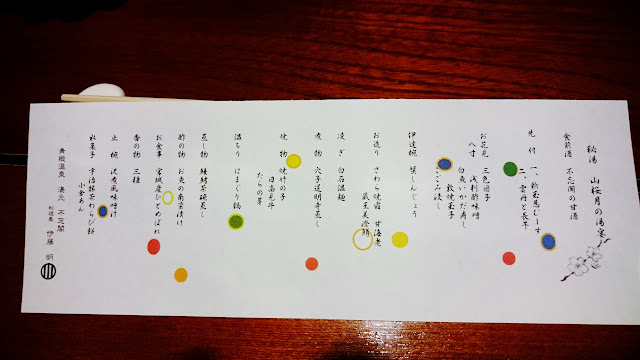 秘湯 山桜月の湯宴
食前酒 不忘閣の甘酒
先付 一、新玉葱むーす
二、雲丹と長芋
お花見 三色団子
八寸 浅利酢味噌
白魚いかだ寿し
敦焼玉子
こごみ浸し
伊達椀 蟹しんじょう
お造り さわら焼霜 甘海老
蔵王美澄鱒
凌ぎ 白石温麺
煮物 穴子道明寺蒸し
焼物 焼竹の子
日高見牛
たらの芽
温もり はまぐり鍋
蒸し物 鰻射茶碗蒸し
酢の物 お魚の南蛮漬け
お食事 宮城産ひとめぼれ
香の物 三種
止椀 沢煮風味噌汁
水菓子 宇治抹茶わらび餅
小倉あん
青根温泉 湯元 不忘閣
料理長 伊藤 明